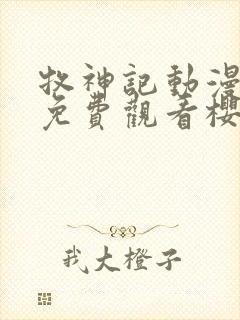 牧神記動漫
免費觀看櫻
我大橙子